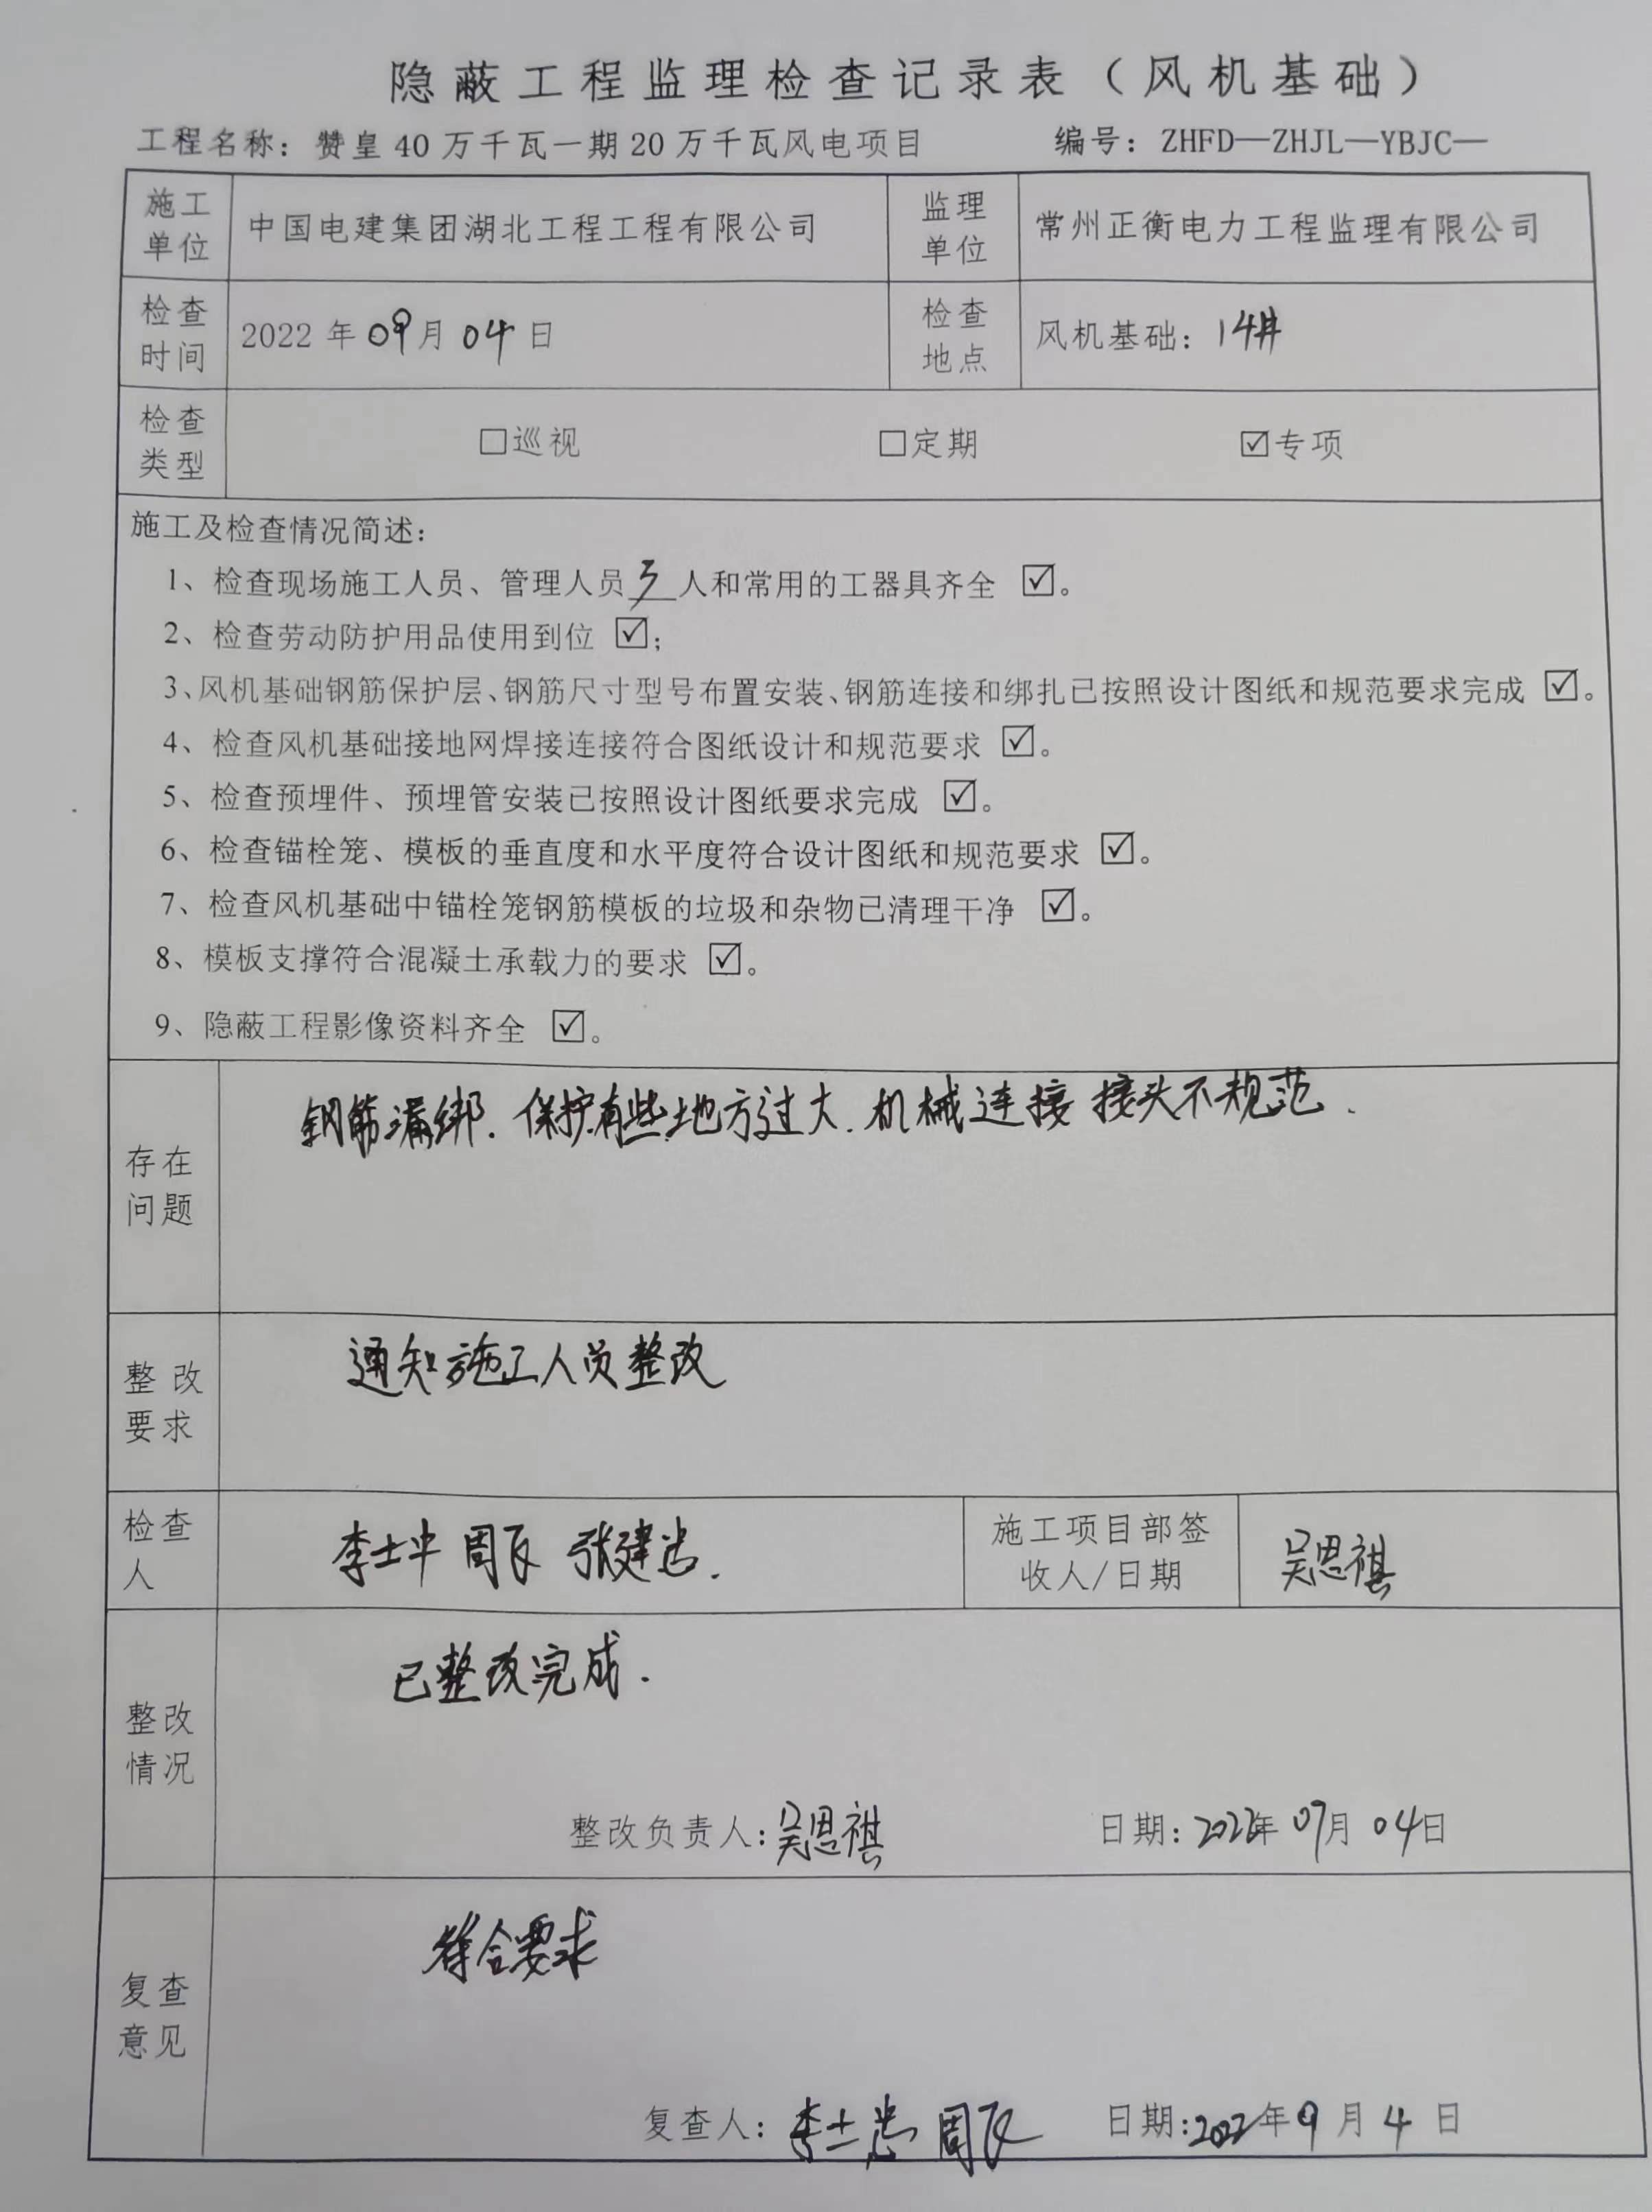 隐蔽工程监理检查记录表（风机基础）
工程名称：赞皇40万千瓦一期20万千瓦风电项目 编号：ZHFD—ZHJL—YBJC—
施工单位 中国电建集团湖北工程工程有限公司 监理单位 常州正衡电力工程监理有限公司
检查时间 2022年09月04日 检查地点 风机基础：14#
检查类型 □巡视 □定期 ☑专项
施工及检查情况简述：
1、检查现场施工人员、管理人员 人和常用的工器具齐全 ☑。
2、检查劳动防护用品使用到位 ☑；
3、风机基础钢筋保护层、钢筋尺寸型号布置安装、钢筋连接和绑扎已按照设计图纸和规范要求完成 ☑。
4、检查风机基础接地网焊接连接符合图纸设计和规范要求 ☑。
5、检查预埋件、预埋管安装已按照设计图纸要求完成 ☑。
6、检查锚栓笼、模板的垂直度和水平度符合设计图纸和规范要求 ☑。
7、检查风机基础中锚栓笼钢筋模板的垃圾和杂物已清理干净 ☑。
8、模板支撑符合混凝土承载力的要求 ☑。
9、隐蔽工程影像资料齐全 ☑。
存在问题 钢筋漏绑. 保护有些地方过大. 机械连接接头不规范.
整改要求 通知施工人员整改
检查人 李士忠 张建忠. 施工项目部签收人/日期 吴恩祺
整改情况 已整改完成.
整改负责人：吴恩祺 日期：2022年09月04日
复查意见 符合要求
复查人：李士忠 日期：2022年9月4日